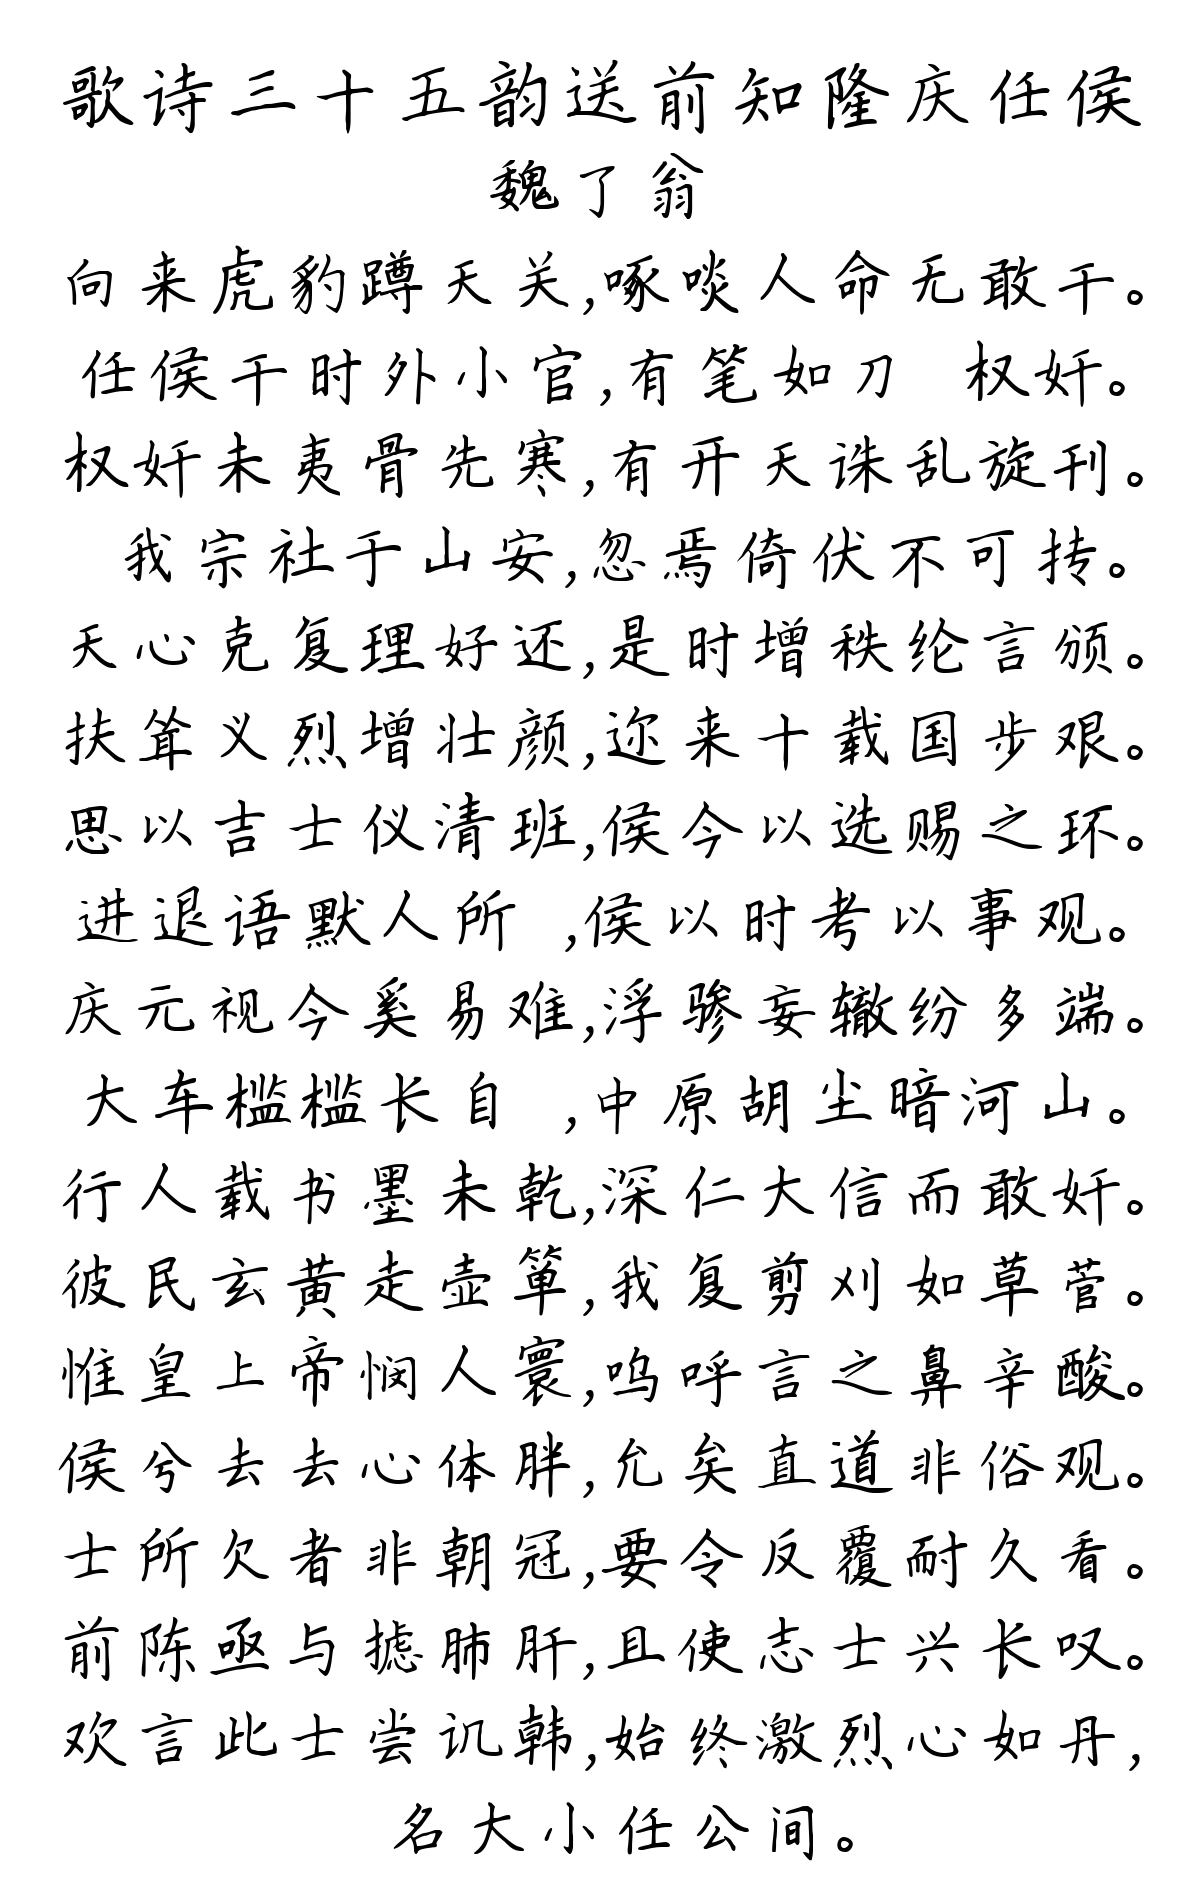 歌诗三十五韵送前知隆庆任侯
魏了翁
向来虎豹蹲天关,啄啖人命无敢干。
任侯干时外小官,有笔如刀 权奸。
权奸未夷骨先寒,有开天诛乱旋刊。
我宗社于山安,忽焉倚伏不可抟。
天心克复理好还,是时增秩纶言颁。
扶耸义烈增壮颜,迩来十载国步艰。
思以吉士仪清班,侯今以选赐之环。
进退语默人所 ,侯以时考以事观。
庆元视今奚易难,浮骖妄辙纷多端。
大车槛槛长自 ,中原胡尘暗河山。
行人载书墨未乾,深仁大信而敢奸。
彼民玄黄走壶箪,我复剪刈如草菅。
惟皇上帝悯人寰,呜呼言之鼻辛酸。
侯兮去去心体胖,允矣直道非俗观。
士所欠者非朝冠,要令反覆耐久看。
前陈亟与摅肺肝,且使志士兴长叹。
欢言此士尝讥韩,始终激烈心如丹,
名大小任公间。